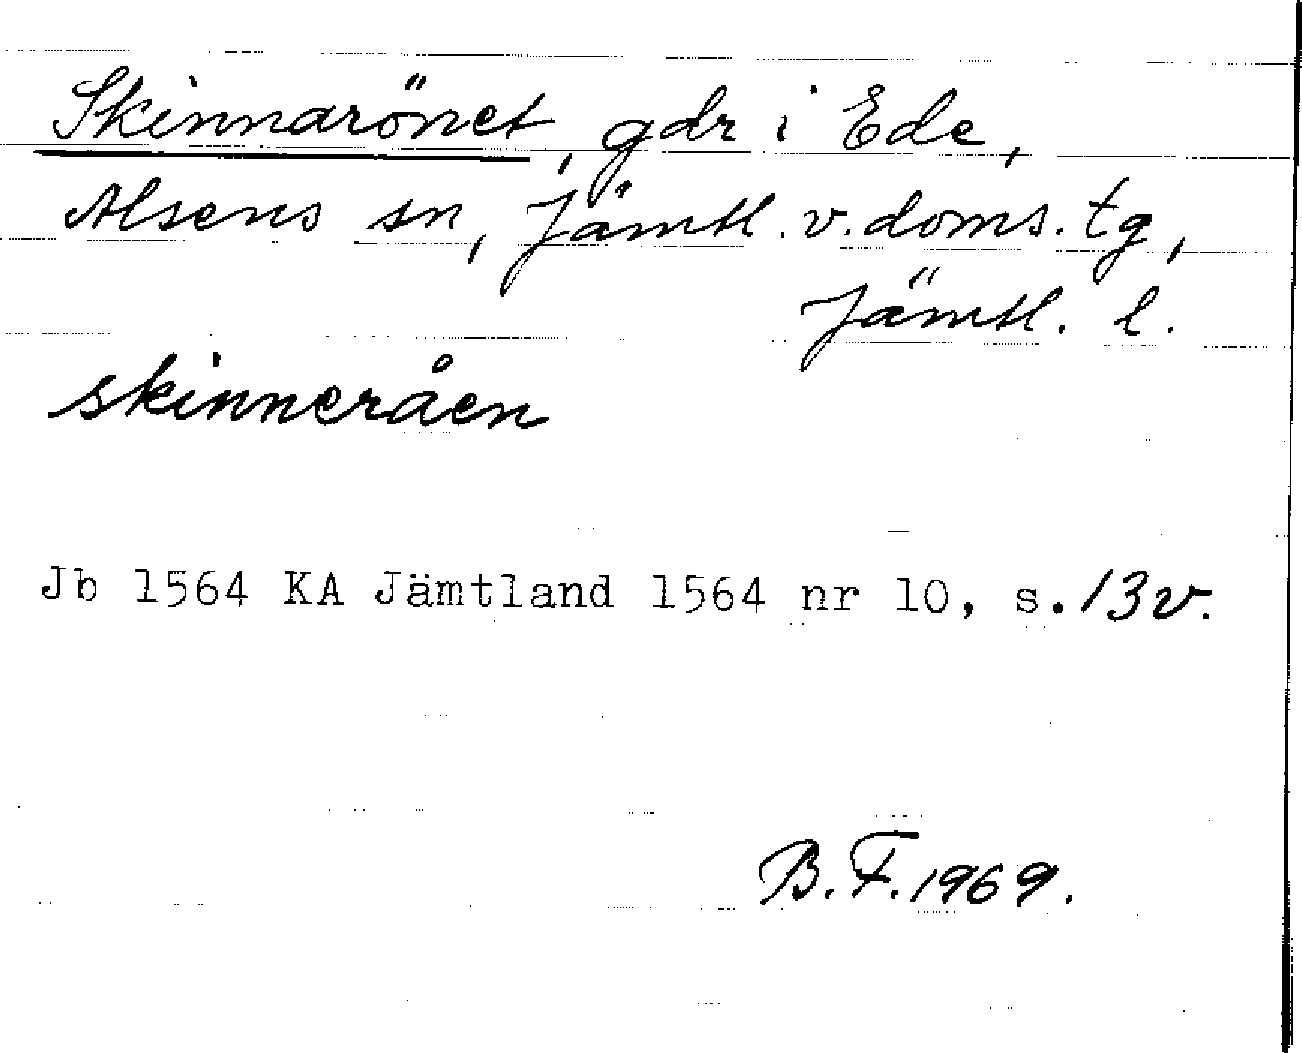 Skinnarönet, gdr i Ede,
Alsens sn, Jämtl. v. doms. tg,
Jämtl. l.
skinneråen
Jb 1564 KA Jämtland 1564 nr 10, s. 13v.
B. F. 1969.